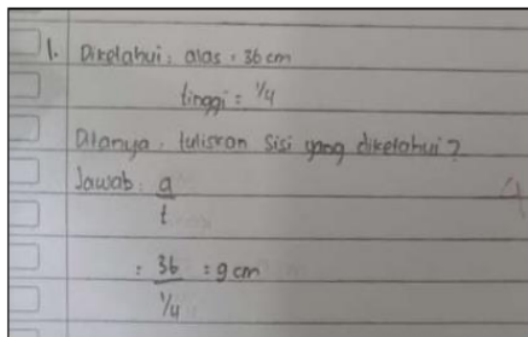 1. Diketahui : alas = 36 cm
tinggi = 1/4
Ditanya : tuliskan sisi yang diketahui ?
Jawab : a
t
= 36 = 9 cm
1/4